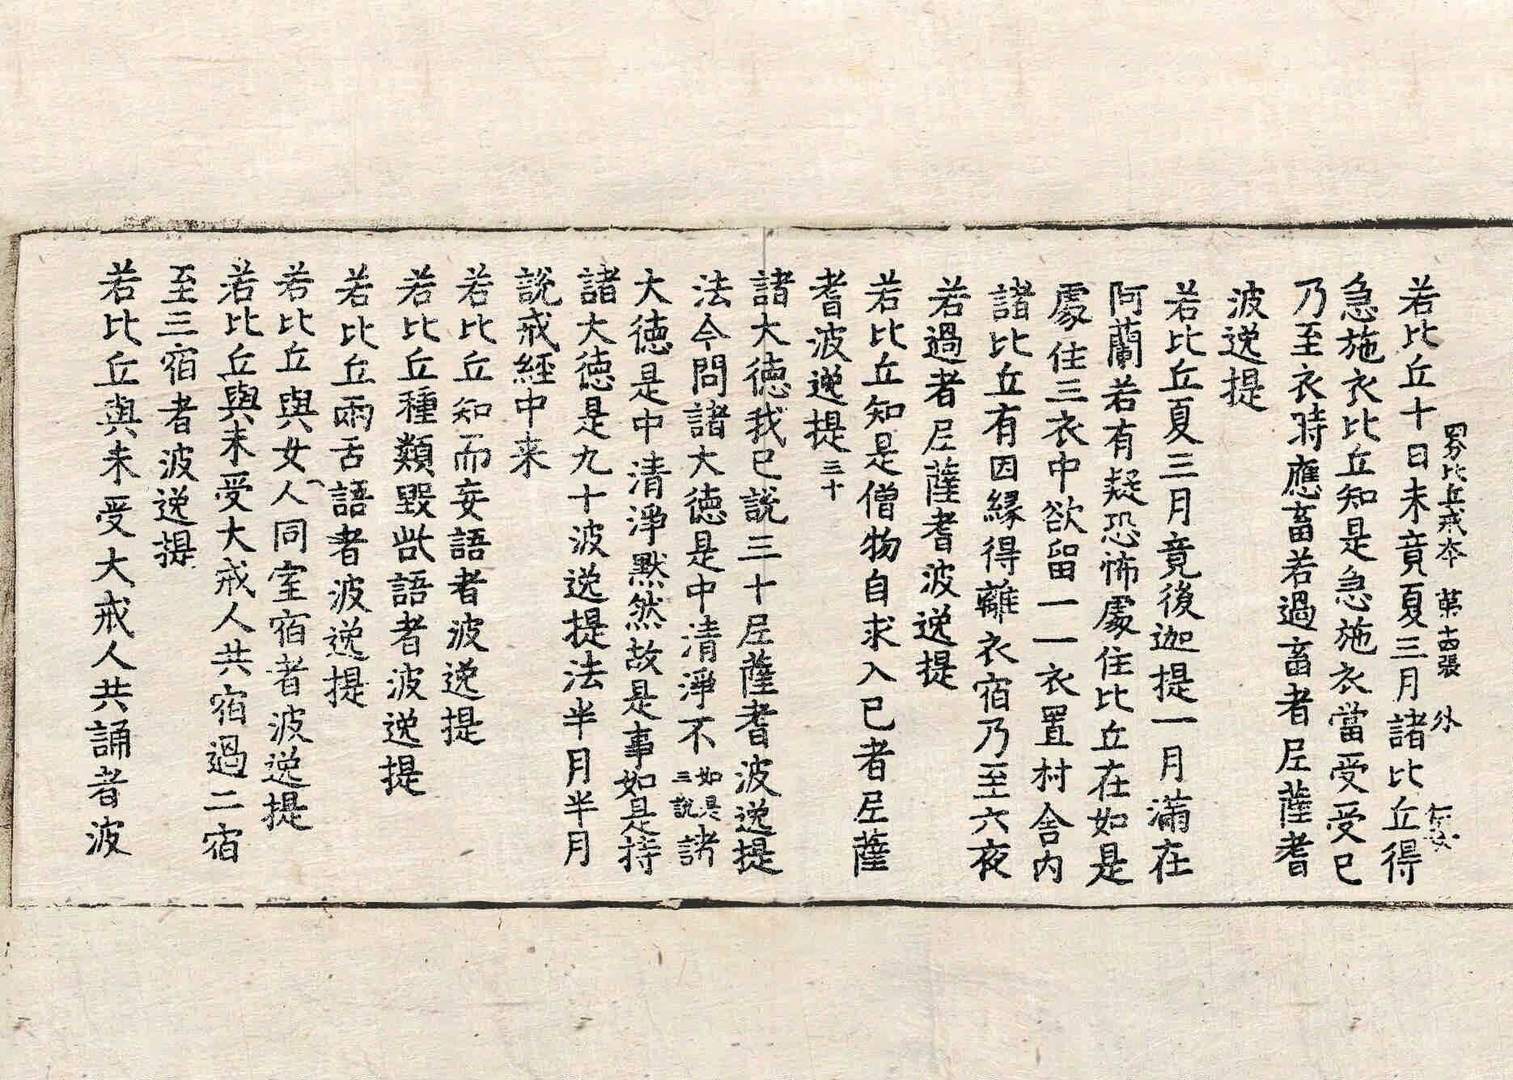 若比丘十日未竟夏三月諸比丘得
四分比丘戒本 第十四張 外
急施衣比丘知是急施衣當受受已
乃至衣時應畜若過畜者尼薩耆
波逸提
若比丘夏三月竟後迦提一月滿在
阿蘭若有疑恐怖處住比丘在如是
處住三衣中欲留一一衣置村舍内
諸比丘有因緣得離衣宿乃至六夜
若過者尼薩耆波逸提
若比丘知是僧物自求入已者尼薩
耆波逸提三十
諸大德我已說三十尼薩耆波逸提
法今問諸大德是中清淨不如是三說諸
大德是中清淨默然故是事如是持
諸大德是九十波逸提法半月半月
說戒經中来
若比丘知而妄語者波逸提
若比丘種類毀呰語者波逸提
若比丘兩舌語者波逸提
若比丘與女人同室宿者波逸提
若比丘與未受大戒人共宿過二宿
至三宿者波逸提
若比丘與未受大戒人共誦者波